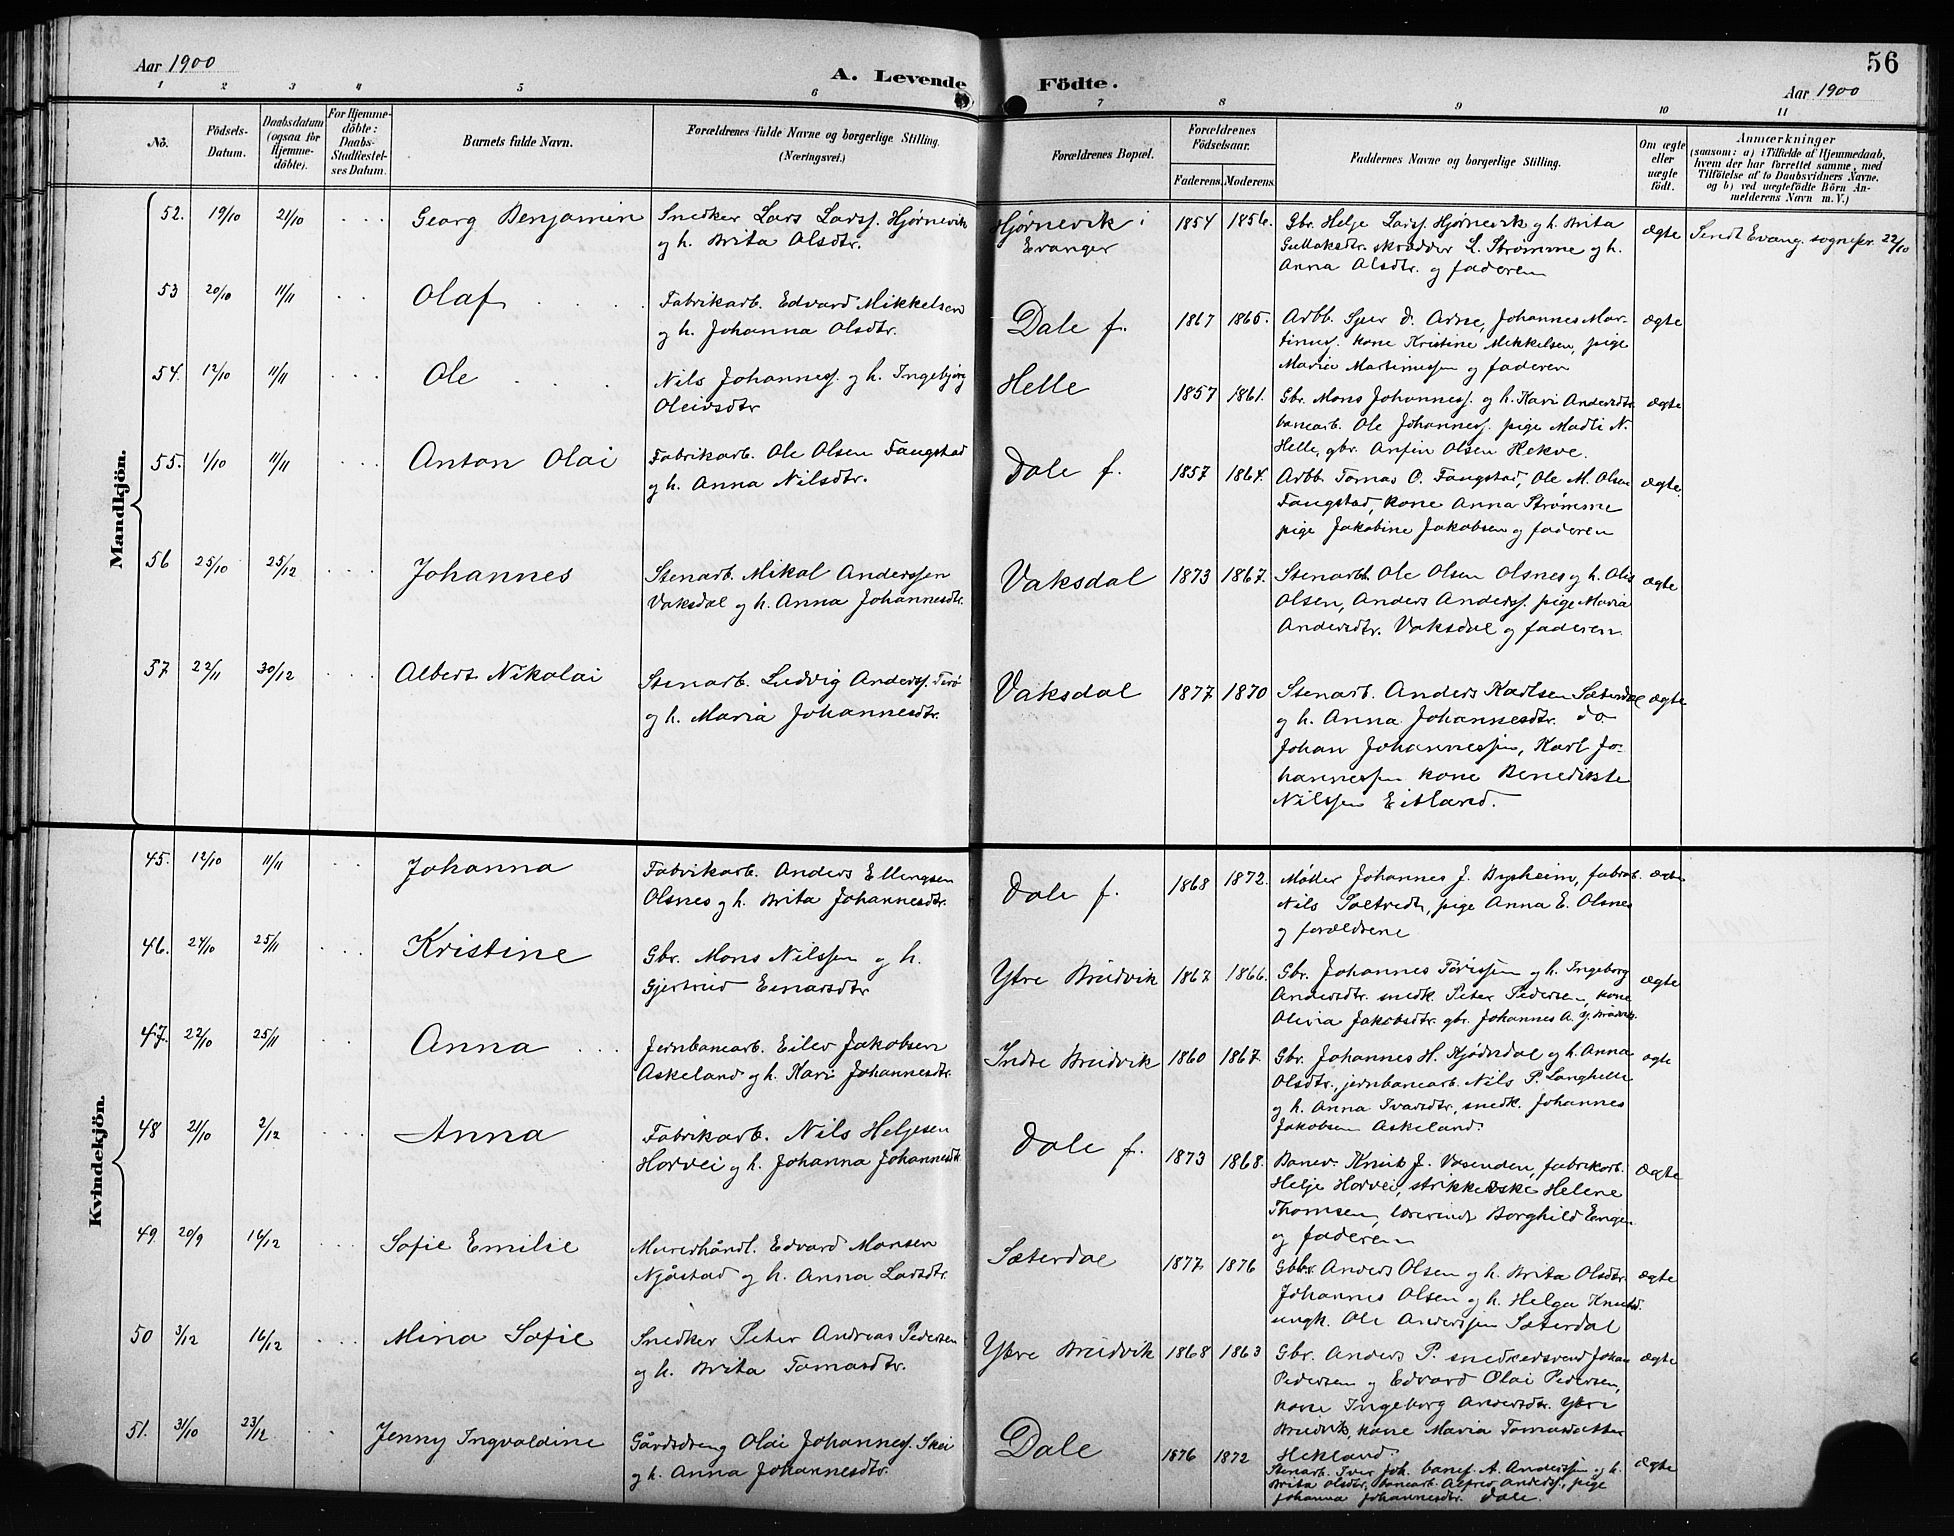 56
Aar 1900
A. Levende Födte.
Aar 1900
1 2 3 4 5 6 7 8 9 10 11
No.
Födsels-Datum.
Daabsdatum (ogsaa for Hjemme-döbte).
For Hjemme-döbte: Daabs-Stadfæstel-ses Datum.
Barnets fulde Navn.
Forældrenes fulde Navne og borgerlige Stilling. (Næringsvei.)
Forældrenes Bopæl.
Forældrenes Födselsaar.
Faderens. Moderens.
Faddernes Navne og borgerlige Stilling.
Om ægte eller uægte födt.
Anmærkninger
(saasom: a) i Tilfælde af Hjemmedaab, hvem der har forrettet samme, med Tilföielse af to Daabsvidners Navne. og b) ved uægtefödte Börn An-melderens Navn m.V.)
Mandkjön.
52. 19/10 21/10 Georg Benjamin
Snedker Lars Larss. Hjørnevik
og h. Brita Olsdtr.
Hjørnevik i
Evanger
1854 1856.
Gbr. Helje Larss. Hjørnevik og h. Brita
Gullaksdtr. skrædder L. Strømme og h.
Anna Olsdtr. og faderen
ægte
Sendt Evang. sognepr. 22/10
53 20/10 11/11 Olaf
Fabrikarb. Edvard Mikkelsen
og h. Johanna Olsdtr.
Dale f.
1867 1865.
Arbb. Sjur d. Arne, Johannes Mar-
tinuss. kone Kristine Mikkelsen, pige
Maria Martinussen og faderen
ægte
54. 12/10 11/11 Ole
Nils Johanness. og h. Ingebjørg
Oleivsdtr
Helle
1857 1861.
Gbr. Mons Johanness. og h. Kari Andersdtr.
banearb. Ole Johanness. pige Madli N.
Helle, gbr. Anfin Olsen Hekve.
ægte
55. 1/10 11/11 Anton Olai
Fabrikarb. Ole Olsen Fangstad
og h. Anna Nilsdtr.
Dale f.
1857 1864.
Arbb. Tomas O. Fangstad, Ole M. Olsen
Fangstad, kone Anna Strømme
pige Jakobine Jakobsen og faderen
ægte
56 25/10 25/12 Johannes
Stenarb. Mikal Anderssen
Vaksdal og h. Anna Johannesdtr.
Vaksdal
1873 1867.
Stenarbb. Ole Olsen Olsnes og h.
Olsen, Anders Anderss. pige Maria
Andersdtr. Vaksdal og faderen
ægte
57 22/11 30/12 Albert Nikolai
Stenarb. Ludvig Anderss.
og h. Maria Johannesdtr.
Vaksdal
1877 1870
Stenarb. Anders Karlsen Sæterdal
og h. Anna Johannesdtr. do
Johan Johannessen, Karl Jo-
hannessen kone Benedikte
Nilssen Eitland.
ægte
Kvindekjön.
45. 12/10 11/11 Johanna
Fabrikarb. Anders Ellingsen
Olsnes og h. Brita Johannesdtr.
Dale f.
1868 1872.
Møller Johannes J. Bysheim, fabrarb.
Nils, pige Anna E. Olsnes
og forældrene
ægte
46. 24/10 25/11 Kristine
Gbr. Mons Nilssen og h.
Gjertrud Einarsdtr
Ytre Bruvik
1867 1866.
Gbr. Johannes Torissen og h. Ingeborg
Andersdtr. snedk. Peter Pedersen, kone
Olivia Jakobsdtr. gbr. Johannes A. Y. Bruvik.
ægte
47. 22/10 25/11 Anna
Jernbanearb. Eilev Jakobsen
Askeland og h. Kari Johannesdtr.
Indre Bruvik
1860 1867.
Gbr. Johannes H. Kjødsdal og h. Anna
Olsdtr., jernbanearb. Nils P. Langhelle
og h. Anna Ivarsdtr, snedk. Johannes
Jakobsen Askeland.
ægte
48 21/10 2/12 Anna
Fabrikarb. Nils Heljesen
Horvei og h. Johanna Johannesdtr.
Dale f.
1873 1868.
Banev. Knut J. Vasenden, fabrikarb.
Helje Horvei, Helene
Thomsen, lærerinde Borghild
og faderen
ægte
49. 20/9 16/12 Sofie Emilie
Edvard Monsen
Njåstad og h. Anna Larsdtr.
Sæterdal
1877 1876
Gbbr. Anders Olsen og h. Brita Olsdtr.
Johannes Olsen og h. Helga Knutsd.
ungk. Ole Anderssen Sæterdal
ægte
50 3/12 16/12 Mina Sofie
Snedker Peter Andreas Pedersen
og h. Brita Tomasdtr.
Ytre Bruvik
1868 1863
Gbr. Anders P. snedkersvend Johan
Pedersen og Edvard Olai Pedersen,
kone Ingeborg Andersdtr. Ytre
Bruvik, kone Maria Tomasdatter
Hekland
ægte
51. 31/10 23/12 Jenny Ingvaldine
Gårdsdreng Olai Johanness. Skei
og h. Anna Johannesdtr.
Dale
1876 1872
Stenarb. Iver Joh. banef. A. Anderssen og h.
Brita Olsdtr, banearb. Alfred Anderss., pige
Johanna Johannesdtr. Dale.
ægte